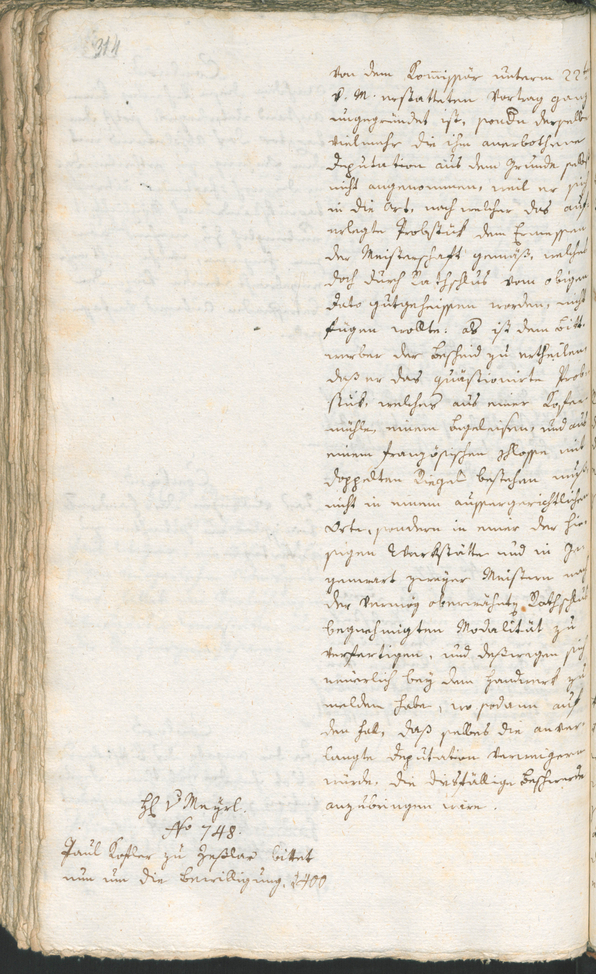 314
von dem Kommissär unterm 22t
v. M. erstatteten Vortrag ganz
ungegründet ist, sondern derselbe
vielmehr die ihm anerbothene
Deputation aus dem Grunde selbst
nicht angenommen, weil er sich
in die Art, nach welcher das auf-
erlegte Probstük dem Ermessen
der Meisterschaft gemäß, welches
doch durch Rathschlus vom obigen
dato gutgeheissen worden, nicht
fügen wollte: als ist dem Bitt-
werber der Bescheid zu ertheilen
daß er das quästionirte Prob-
stük, welches aus einer Kofee-
mühle, einem Bögeleisen, und aus
einem französischen Schlosse mit
doppelten Riegel bestehen muß
nicht in einem aussergerichtlichen
Orte, sondern in einer der hie-
sigen Werkstätte und in Ge-
genwart zweyer Meistern nach
der vermög oberwähnten Rathschlus
begnehmigten Modalität zu
verfertigen, und deßwegen sich
neuerlich bey dem Handwerk zu
melden habe, wo sodann auf
den Fall, daß selbes die anver-
langte Deputation verweigern
würde, die diesfällige Beschwerde
anzubringen wäre.
H v Mayrl.
No 748.
Paul Kofler zu bitet
nun um die Bewilligung, 2400